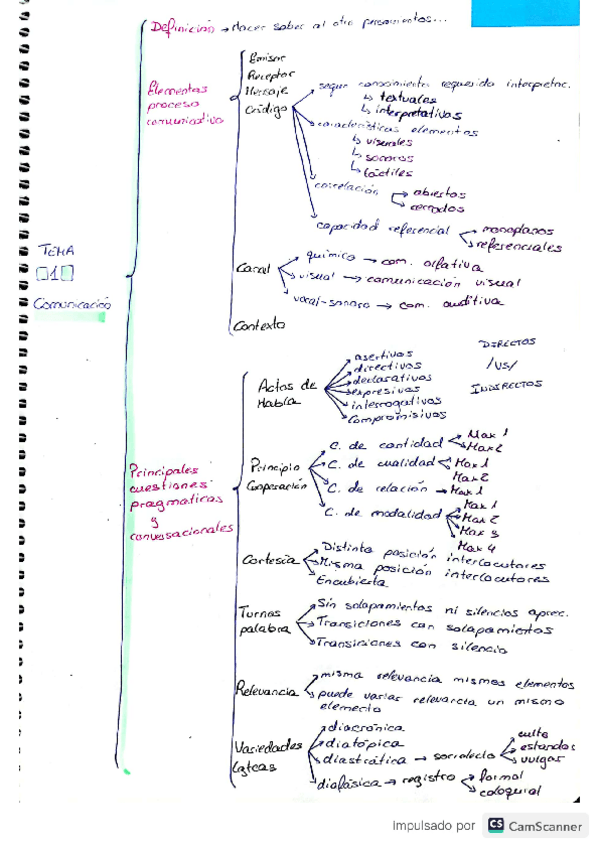 Definición → Hacer saber al otro pensamientos...
Elementos
proceso
comunicativo
Emisor
Receptor
Mensaje
Código
según conocimiento requerido interpretac.
↳ textuales
↳ interpretativos
características elementos
↳ visuales
↳ sonoros
↳ táctiles
correlación
abiertos
cerrados
capacidad referencial
monoplanos
referenciales
TEMA
1
Comunicación
Canal
químico → com. olfativa
visual → comunicación visual
vocal-sonoro → com. auditiva
Contexto
Principales
cuestiones
pragmáticas
y
conversacionales
Actos de
Habla
asertivos
directivos
declarativos
expresivos
interrogativos
compromisivos
DIRECTOS
/VS/
INDIRECTOS
Principio
Cooperación
C. de cantidad
Max 1
Max 2
C. de cualidad
Max 1
Max 2
C. de relación → Max 1
C. de modalidad
Max 1
Max 2
Max 3
Max 4
Cortesía
Distinta posición interlocutores
Misma posición interlocutores
Encubierta
Turnos
palabra
Sin solapamientos ni silencios aprec.
Transiciones con solapamientos
Transiciones con silencio
Relevancia
misma relevancia mismos elementos
puede variar relevancia un mismo
elemento
Variedades
lgtcas
diacrónica
diatópica
diastrática → sociolecto
culto
estándar
vulgar
diafásica → registro
formal
coloquial
Impulsado por CS CamScanner